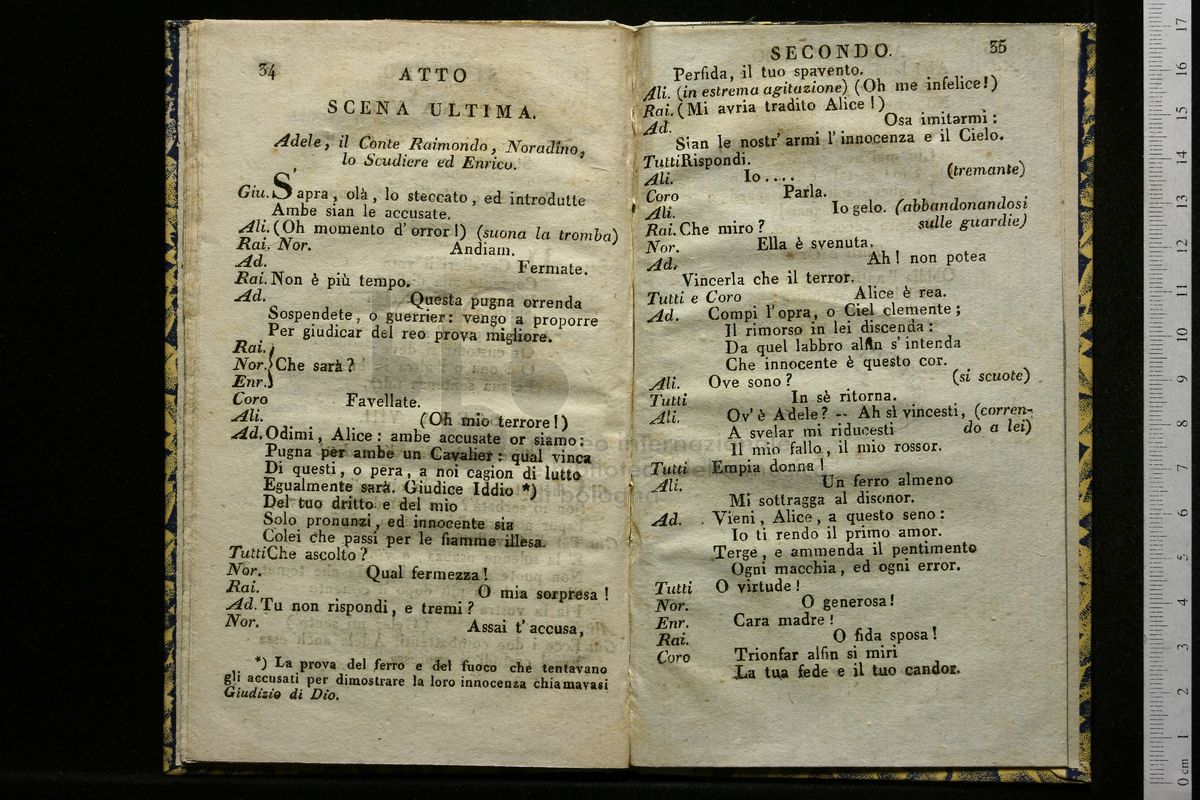 34
ATTO
SCENA ULTIMA.
Adele, il Conte Raimondo, Noradino,
lo Scudiere ed Enrico.
Giu. S'apra, olà, lo steccato, ed introdutte
Ambe sian le accusate.
Ali. (Oh momento d' orror!) (suona la tromba)
Rai. Nor. Andiam.
Ad. Fermate.
Rai. Non è più tempo.
Ad. Questa pugna orrenda
Sospendete, o guerrier: vengo a proporre
Per giudicar del reo prova migliore.
Rai.
Nor. } Che sarà?
Enr.
Coro Favellate.
Ali. (Oh mio terrore!)
Ad. Odimi, Alice: ambe accusate or siamo:
Pugna per ambe un Cavalier: qual vinca
Di questi, o pera, a noi cagion di lutto
Egualmente sarà. Giudice Iddio *)
Del tuo dritto e del mio
Solo pronunzi, ed innocente sia
Colei che passi per le fiamme illesa.
Tutti Che ascolto?
Nor. Qual fermezza!
Rai. O mia sorpresa!
Ad. Tu non rispondi, e tremi?
Nor. Assai t' accusa,
*) La prova del ferro e del fuoco che tentavano
gli accusati per dimostrare la loro innocenza chiamavasi
Giudizio di Dio.
SECONDO. 35
Perfida, il tuo spavento.
Ali. (in estrema agitazione) (Oh me infelice!)
Rai. (Mi avria tradito Alice!)
Ad. Osa imitarmi:
Sian le nostr' armi l' innocenza e il Cielo.
Tutti Rispondi.
Ali. Io.... (tremante)
Coro Parla.
Ali. Io gelo. (abbandonandosi
sulle guardie)
Rai. Che miro?
Nor. Ella è svenuta.
Ad. Ah! non potea
Vincerla che il terror.
Tutti e Coro Alice è rea.
Ad. Compi l' opra, o Ciel clemente;
Il rimorso in lei discenda:
Da quel labbro alfin s' intenda
Che innocente è questo cor.
Ali. Ove sono? (si scuote)
Tutti In sè ritorna.
Ali. Ov' è Adele? -- Ah sì vincesti, (corren-
A svelar mi riducesti do a lei)
Il mio fallo, il mio rossor.
Tutti Empia donna!
Ali. Un ferro almeno
Mi sottragga al disonor.
Ad. Vieni, Alice, a questo seno:
Io ti rendo il primo amor.
Terge, e ammenda il pentimento
Ogni macchia, ed ogni error.
Tutti O virtude!
Nor. O generosa!
Enr. Cara madre!
Rai. O fida sposa!
Coro Trionfar alfin si miri
La tua fede e il tuo candor.
museo internazionale
e biblioteca della musica
di bologna
0 cm 1 2 3 4 5 6 7 8 9 10 11 12 13 14 15 16 17